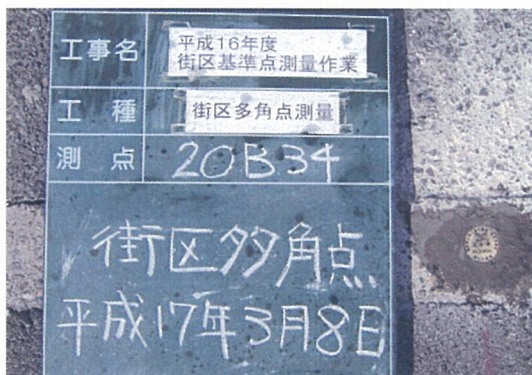 工事名 平成16年度
街区基準点測量作業
工種 街区多角点測量
測点 20B34
街区多角点
平成17年3月8日